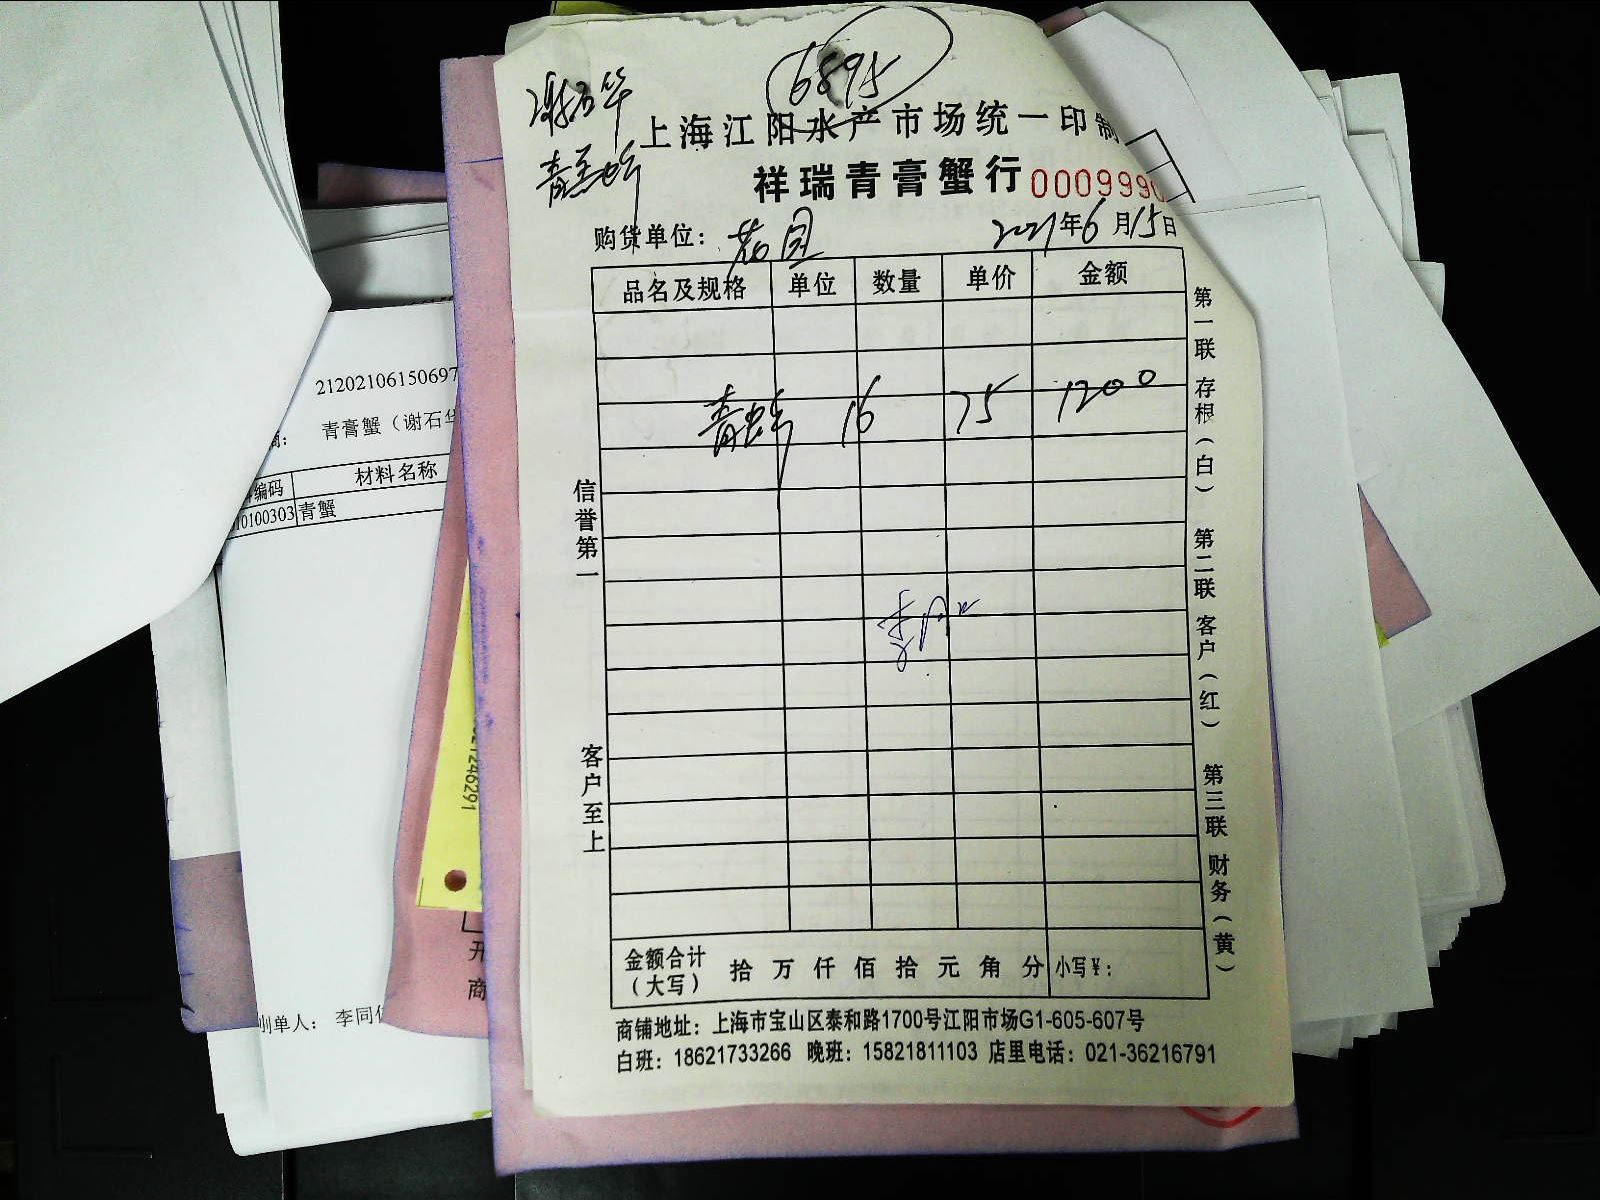 谢石华
6895
上海江阳水产市场统一印制
青羔蟹
祥瑞青膏蟹行 000999
购货单位： 茗园 2021年6月15日
品名及规格 单位 数量 单价 金额
青蟹 16 75 1200
信誉第一
客户至上
第一联 存根（白） 第二联 客户（红） 第三联 财务（黄）
金额合计（大写） 拾 万 仟 佰 拾 元 角 分 小写¥：
商铺地址：上海市宝山区泰和路1700号江阳市场G1-605-607号
白班：18621733266 晚班：15821811103 店里电话：021-36216791
21202106150697
商： 青膏蟹（谢石华
编码 材料名称
10100303 青蟹
制单人： 李同
021246291
开
商